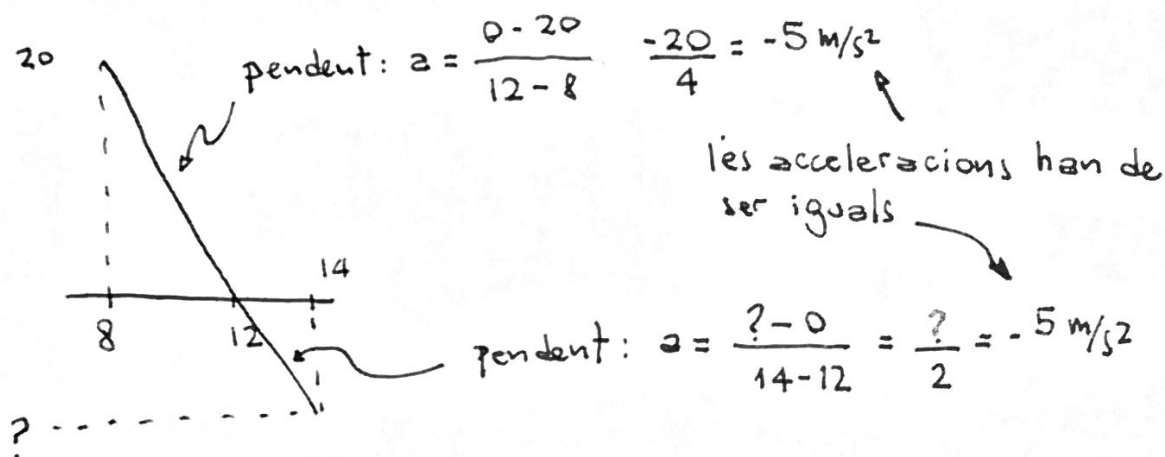 20
pendent: a = (0 - 20)/(12 - 8)   -20/4 = -5 m/s²
les acceleracions han de
ser iguals
14
8
12
pendent: a = (? - 0)/(14 - 12) = ?/2 = - 5 m/s²
?